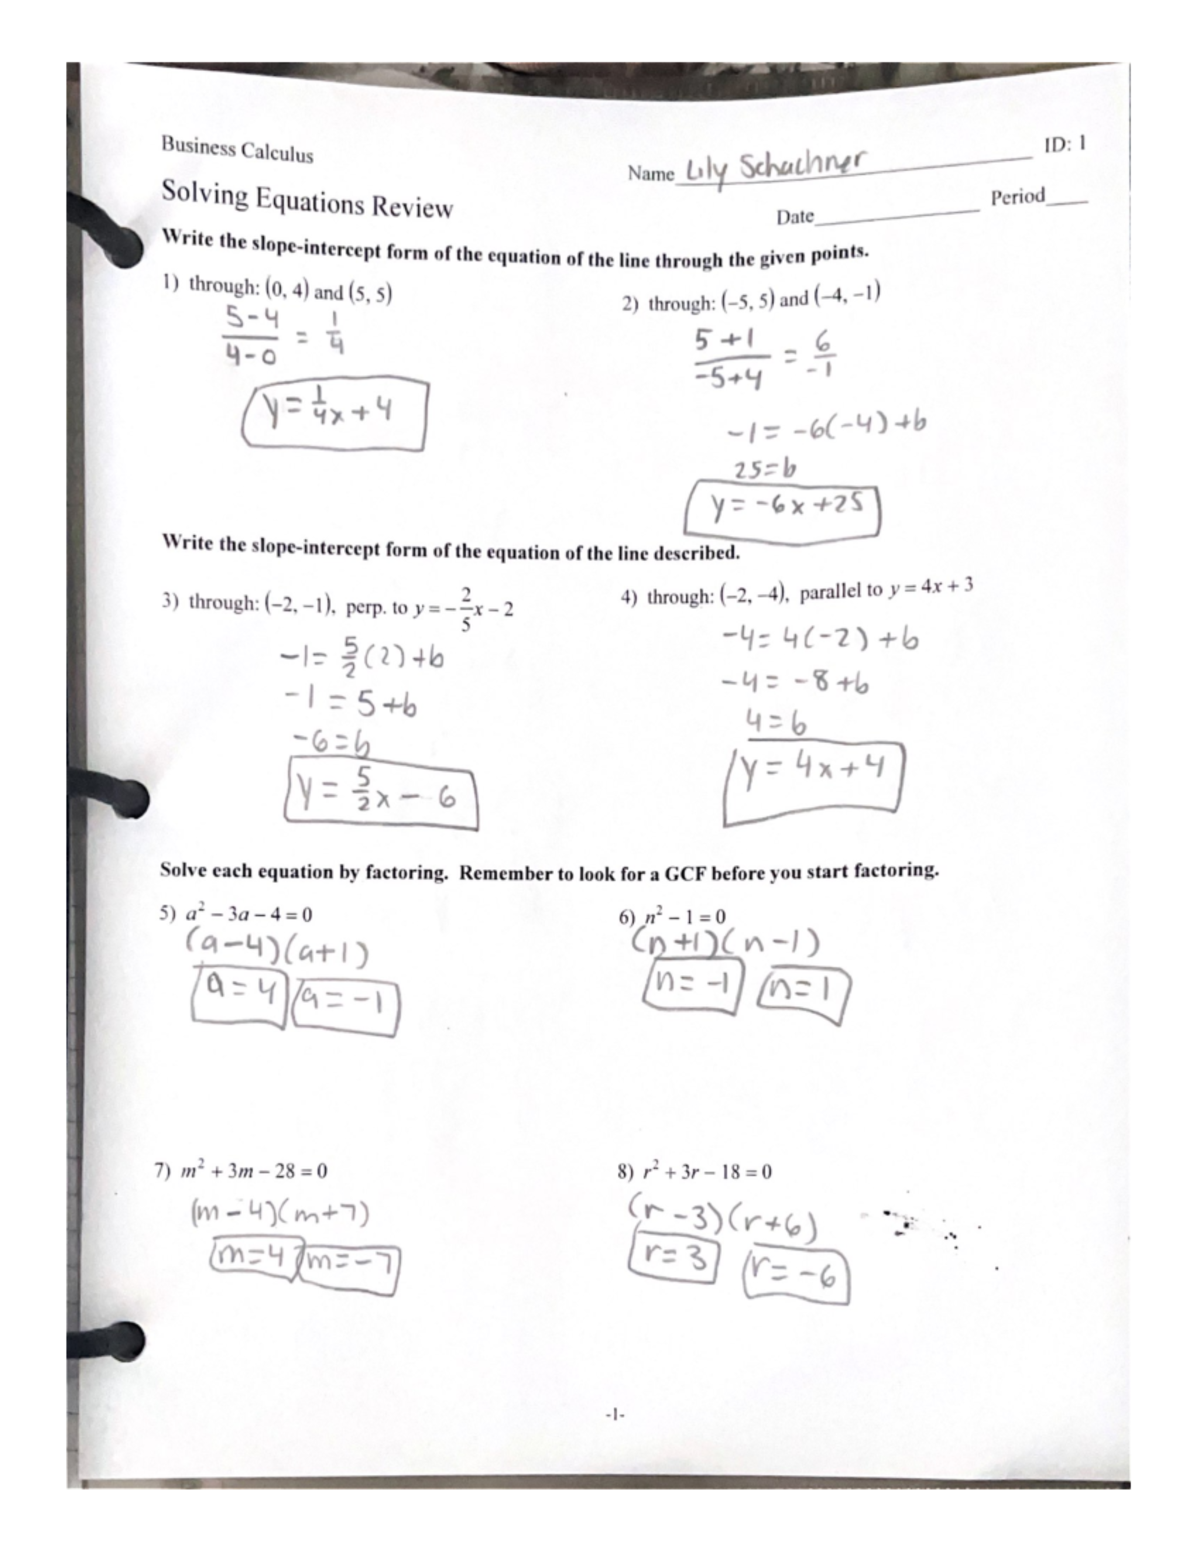 Business Calculus
ID: 1
Name Lily Schachner
Solving Equations Review
Date Period
Write the slope-intercept form of the equation of the line through the given points.
1) through: (0, 4) and (5, 5)
5-4
4-0
= 1/4
y = 1/4x + 4
2) through: (–5, 5) and (–4, –1)
5+1
-5+4
= 6/-1
-1 = -6(-4)+b
25=b
y = -6x+25
Write the slope-intercept form of the equation of the line described.
3) through: (–2, –1), perp. to y = –2/5x – 2
-1 = 5/2(2)+b
-1 = 5+b
-6=b
y = 5/2x - 6
4) through: (–2, –4), parallel to y = 4x + 3
-4 = 4(-2)+b
-4 = -8+b
4=b
y = 4x+4
Solve each equation by factoring. Remember to look for a GCF before you start factoring.
5) a² – 3a – 4 = 0
(a-4)(a+1)
a=4 a=-1
6) n² – 1 = 0
(n+1)(n-1)
n=-1 n=1
7) m² + 3m – 28 = 0
(m-4)(m+7)
m=4 m=-7
8) r² + 3r – 18 = 0
(r-3)(r+6)
r=3 r=-6
-1-